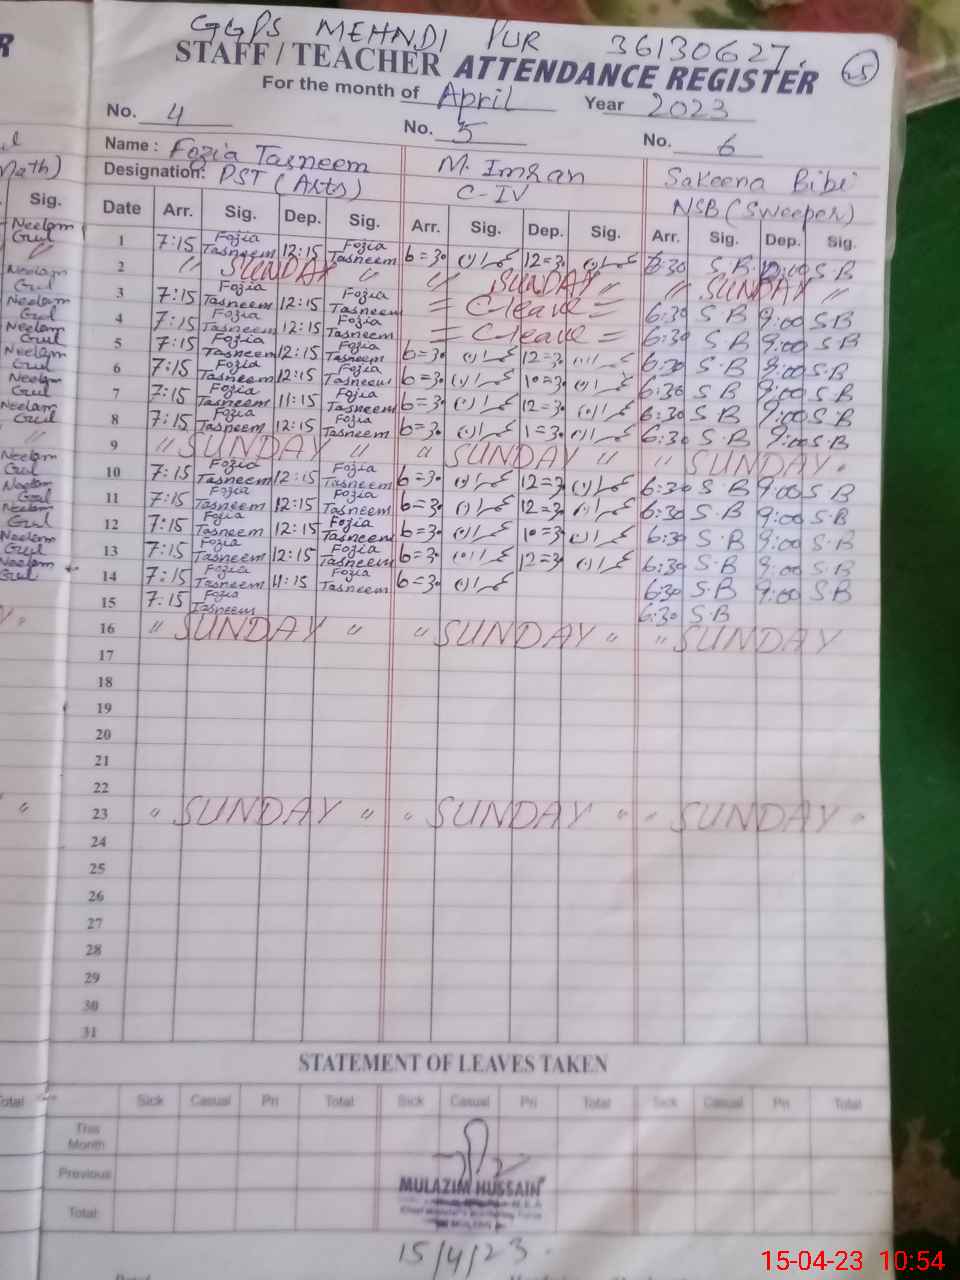 GGPS MEHNDI PUR 36130627.
STAFF / TEACHER ATTENDANCE REGISTER 25
For the month of April Year 2023
No. 4 No. 5 No. 6
Name : Fozia Tasneem M. Imran Sakeena Bibi
Designation: PST (Arts) C-IV NSB (Sweeper)
Math)
Sig. Date Arr. Sig. Dep. Sig. Arr. Sig. Dep. Sig. Arr. Sig. Dep. Sig.
Neelam Gul 1 7:15 Fozia Tasneem 12:15 Fozia Tasneem 6=30 عمران 12=30 عمران 6:30 S.B 12:00 S.B
〃 2 〃 SUNDAY 〃 〃 SUNDAY 〃 〃 SUNDAY 〃
Neelam Gul 3 7:15 Fozia Tasneem 12:15 Fozia Tasneem = C-leave = 6:30 S.B 9:00 S.B
Neelam Gul 4 7:15 Fozia Tasneem 12:15 Fozia Tasneem = C-leave = 6:30 S.B 9:00 S.B
Neelam Gul 5 7:15 Fozia Tasneem 12:15 Fozia Tasneem 6=30 عمران 12=30 عمران 6:30 S.B 9:00 S.B
Neelam Gul 6 7:15 Fozia Tasneem 12:15 Fozia Tasneem 6=30 عمران 10=30 عمران 6:30 S.B 9:00 S.B
Neelam Gul 7 7:15 Fozia Tasneem 11:15 Fozia Tasneem 6=30 عمران 12=30 عمران 6:30 S.B 9:00 S.B
Neelam Gul 8 7:15 Fozia Tasneem 12:15 Fozia Tasneem 6=30 عمران 1=30 عمران 6:30 S.B 9:00 S.B
〃 9 〃 SUNDAY 〃 〃 SUNDAY 〃 〃 SUNDAY.
Neelam Gul 10 7:15 Fozia Tasneem 12:15 Fozia Tasneem 6=30 عمران 12=30 عمران 6:30 S.B 9:00 S.B
Neelam Gul 11 7:15 Fozia Tasneem 12:15 Fozia Tasneem 6=30 عمران 12=30 عمران 6:30 S.B 9:00 S.B
Neelam Gul 12 7:15 Fozia Tasneem 12:15 Fozia Tasneem 6=30 عمران 10=30 عمران 6:30 S.B 9:00 S.B
Neelam Gul 13 7:15 Fozia Tasneem 12:15 Fozia Tasneem 6=30 عمران 12=30 عمران 6:30 S.B 9:00 S.B
Neelam Gul 14 7:15 Fozia Tasneem 11:15 Fozia Tasneem 6=30 عمران 6:30 S.B 9:00 S.B
15 7:15 Fozia Tasneem 6:30 S.B
16 〃 SUNDAY 〃 〃 SUNDAY 〃 〃 SUNDAY
17
18
19
20
21
22
〃 23 〃 SUNDAY 〃 〃 SUNDAY 〃 〃 SUNDAY 〃
24
25
26
27
28
29
30
31
STATEMENT OF LEAVES TAKEN
Total Sick Casual Pri Total Sick Casual Pri Total Sick Casual Pri Total
This Month
Previous
Total:
MULAZIM HUSSAIN
15/4/23.
15-04-23 10:54